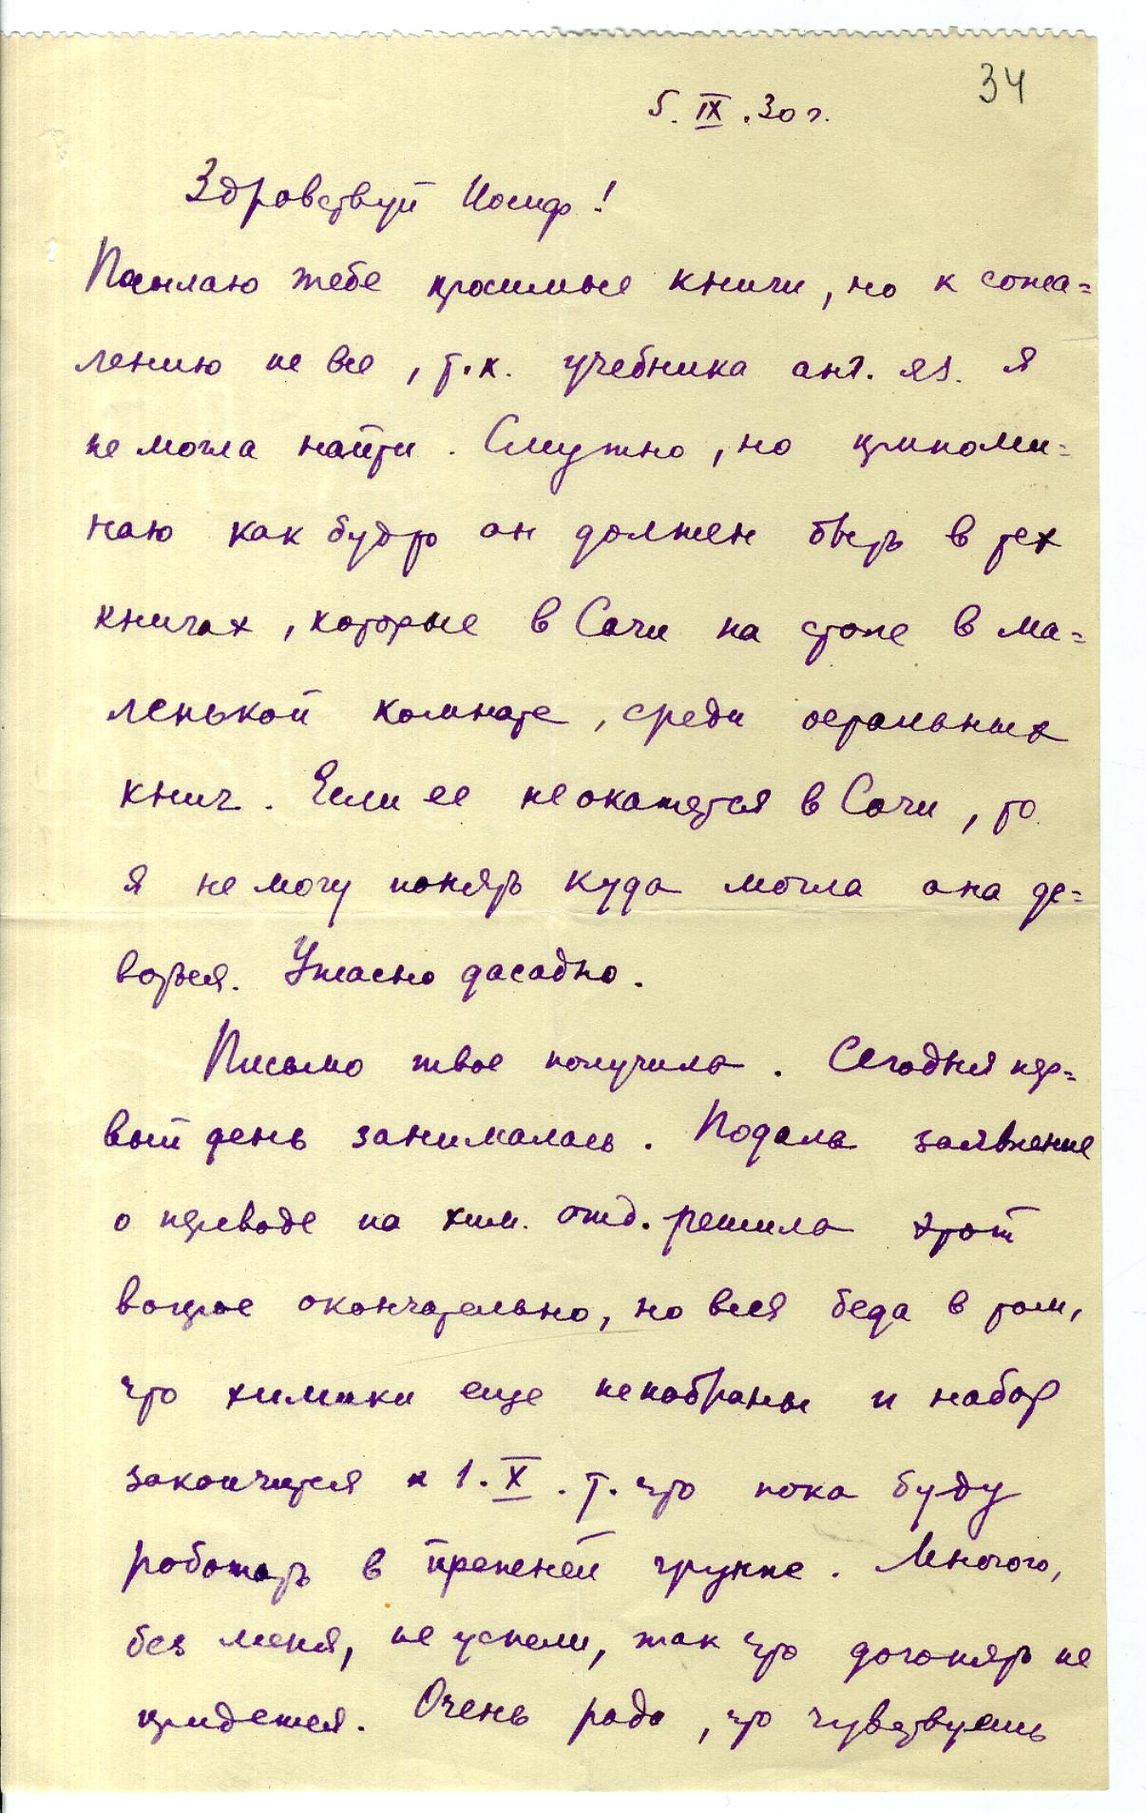 34
5.IX.30 г.
Здравствуй Иосиф!
Посылаю тебе просимые книги, но к сожа=
лению не все, т.к. учебника анг. яз. я
не могла найти. Смутно, но припоми=
наю как будто он должен быть в тех
книгах, которые в Сочи на столе в ма=
ленькой комнате, среди остальных
книг. Если ее не окажется в Сочи, то
я не могу понять куда могла она де=
ваться. Ужасно досадно.
Письмо твое получила. Сегодня пер=
вый день занималась. Подала заявление
о переводе на хим. отд. решила этот
вопрос окончательно, но вся беда в том,
что химики еще не набраны и набор
закончится к 1.X. т. что пока буду
работать в прежней группе. Многого,
без меня, не успели, так что догонять не
придется. Очень рада, что чувствуешь